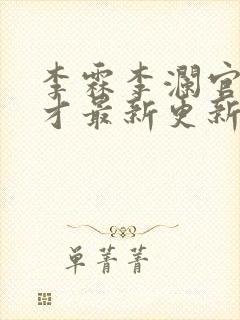 李霖李澜官
才最新更新
单菁菁